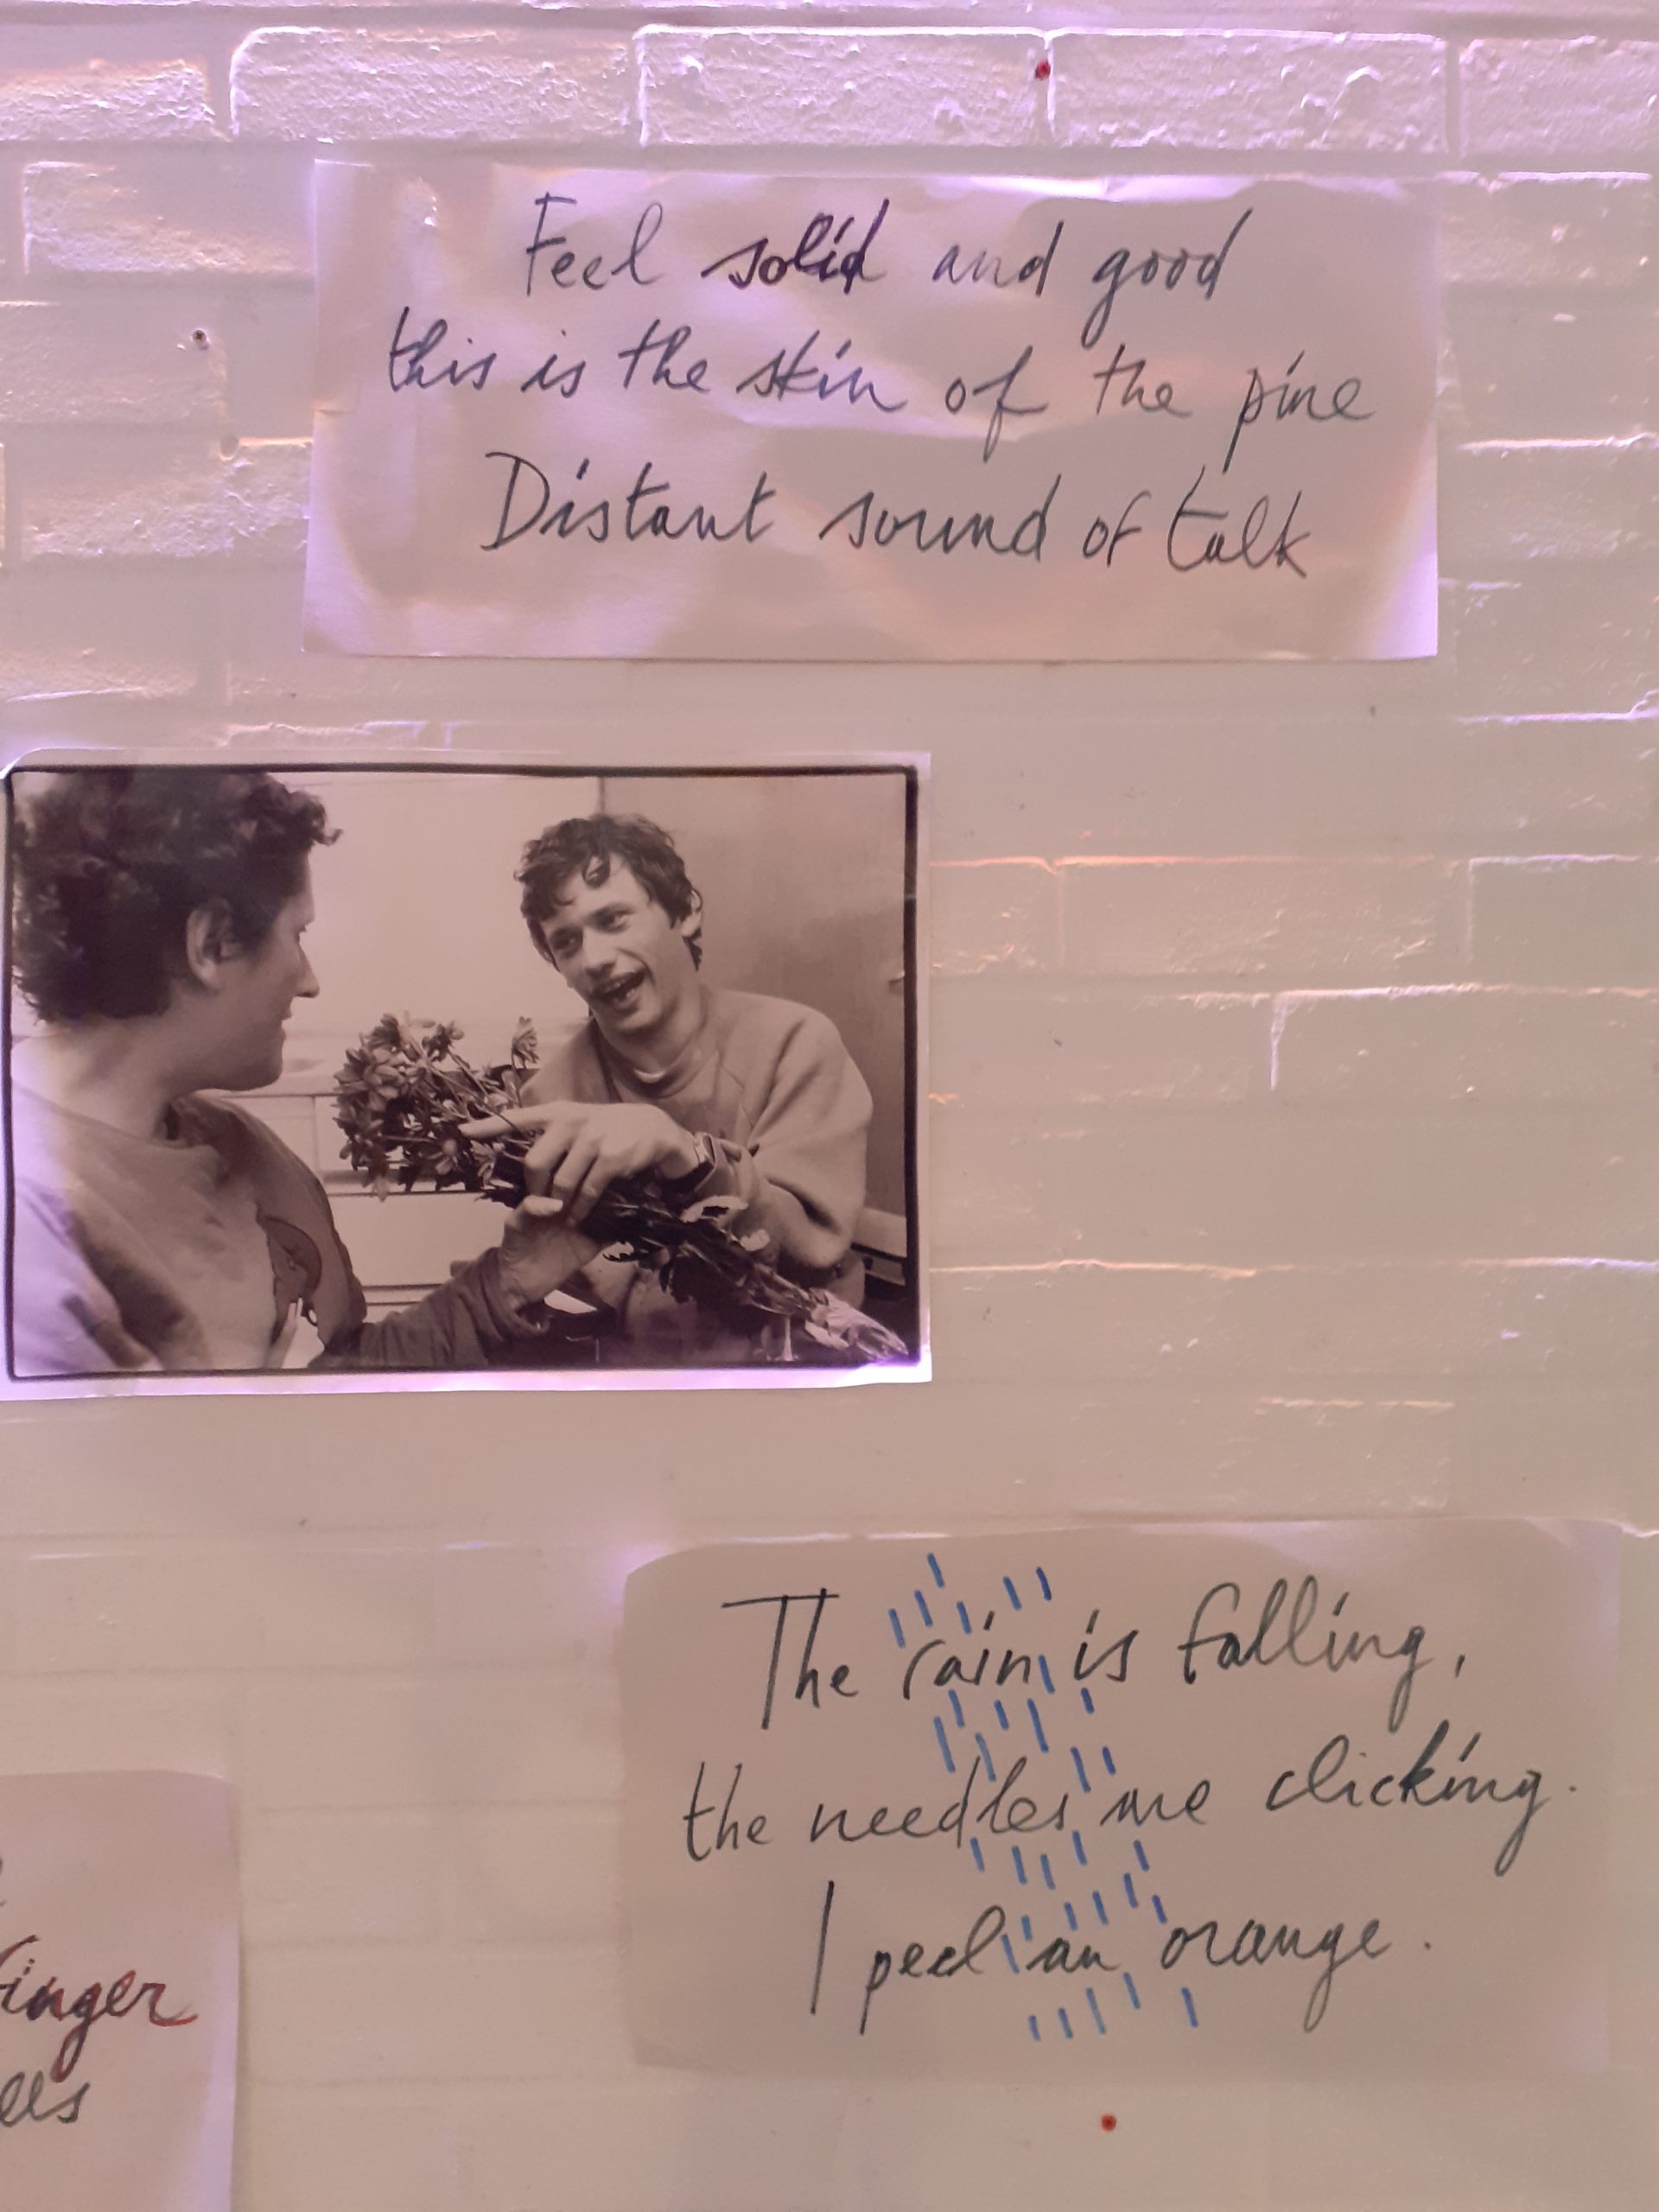 Feel solid and good
this is the skin of the pine
Distant sound of talk
The rain is falling,
the needles are clicking.
I peel an orange.
finger